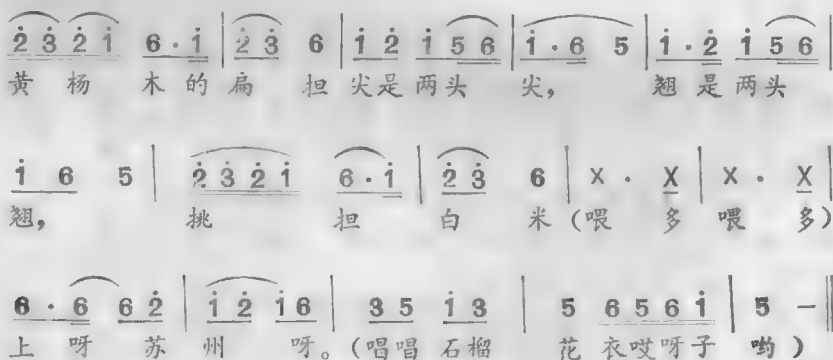 2̇ 3̇ 2̇ 1̇ 6 · 1̇ | 2̇ 3̇ 6 | 1̇ 2̇ 1̇ 5 6 | 1̇ · 6 5 | 1̇ · 2̇ 1̇ 5 6 |
黄 杨 木 的 扁 担 尖是 两头 尖， 翘 是 两头
1̇ 6 5 | 2̇ 3̇ 2̇ 1̇ 6 · 1̇ | 2̇ 3̇ 6 | X · X | X · X |
翘， 挑 担 白 米（喂 多 喂 多）
6 · 6 6 2̇ | 1̇ 2̇ 1̇ 6 | 3 5 1̇ 3 | 5 6 5 6 1̇ | 5 – ‖
上 呀 苏 州 呀。（唱唱 石榴 花 衣哎呀子 哟）